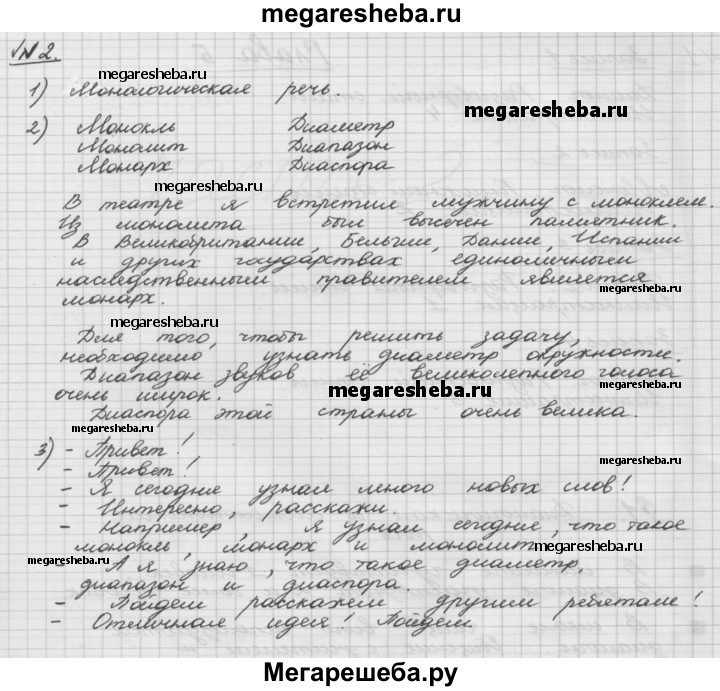 megaresheba.ru
№2.
megaresheba.ru
1) Монологическая речь.
megaresheba.ru
2) Монокль Диаметр
Монолит Диапазон
Монарх Диаспора
megaresheba.ru
В театре я встретил мужчину с моноклем.
Из монолита был высечен памятник.
В Великобритании, Бельгии, Дании, Испании
и других государствах единоличным
наследственным правителем является
megaresheba.ru
монарх.
megaresheba.ru
Для того, чтобы решить задачу,
необходимо узнать диаметр окружности.
Диапазон звуков её великолепного голоса
очень широк.
megaresheba.ru
Диаспора этой страны очень велика.
megaresheba.ru
3) - Привет!
- Привет!
megaresheba.ru
- Я сегодня узнал много новых слов!
- Интересно, расскажи.
- Например, я узнал сегодня, что такое
монокль, монарх и монолит.
megaresheba.ru
megaresheba.ru
- А я знаю, что такое диаметр,
диапазон и диаспора.
- Пойдем расскажем другим ребятам!
megaresheba.ru
megaresheba.ru
- Отличная идея! Пойдем
Мегарешеба.ру